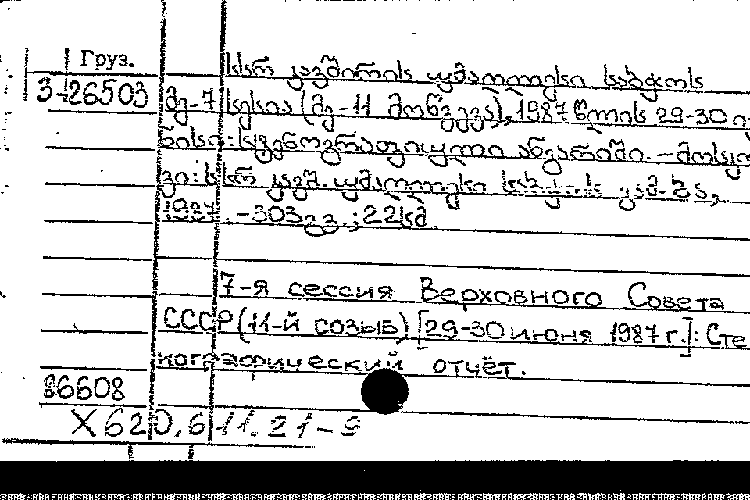 Груз.
სსრ კავშირის უმაღლესი საბჭოს
3-26503 მე-7 სესია (მე-11 მოწვევა), 1987 წლის 29-30 ივ
ნისი: სტენოგრაფიული ანგარიში. – მოსკო
ვი: სსრ კავშ. უმაღლესი საბჭოს გამ-ბა,
1987. – 303 გვ.; 22 სმ.
7-я сессия Верховного Совета
СССР (11-й созыв) [29-30 июня 1987 г.]: Сте
нографический отчёт.
86608
X620.611.21-9